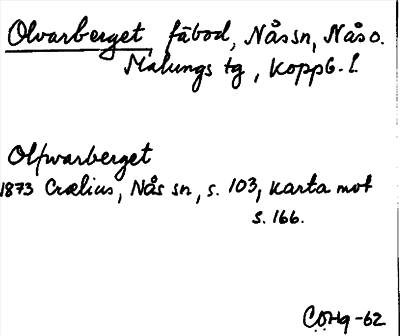 Olvarberget fäbod, Nås sn, Nås o.
Malungs tg, Koppb. l.
Olfwarberget
1873 Crælius, Nås sn, s. 103, karta mot
s. 166.
COHq -62